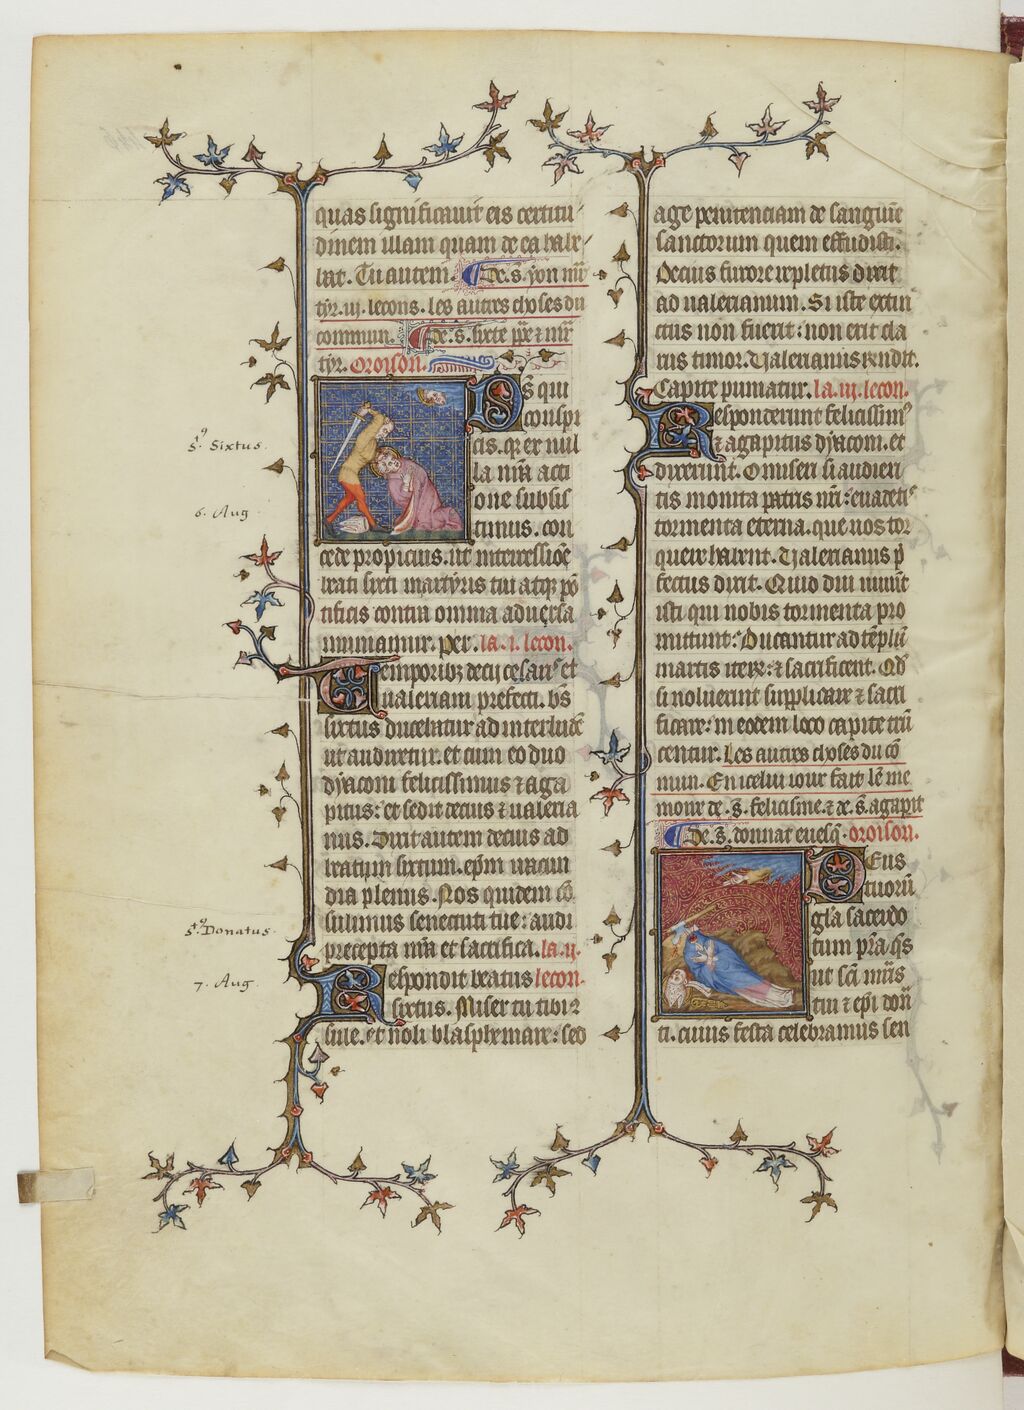 quas significauit eis certitu
dinem illam quam de ea habe
bat. Tu autem. De .s. yon mr̄
tyr. iij. lecons. les autres choses du
commun. De .s. sixte ꝑꝑe ⁊ mr̄
tyr. Oroison.
Ds̄ qui
conspi
cis. qꝛ ex nul
la nr̄a acti
one subsis
timus. con
cede propicius. ut intercessiōe
beati sixti martyris tui atqꝫ pō
tificis contra omnia aduersa
muniamur. per. la .i. lecon.
Temporibꝫ decij cesaris et
ualeriani prefecti. bs̄
sixtus ducebatur ad
ut audiretur. et cum eo duo
dyaconi felicissimus ⁊ aga
pitus: et sedit decius ⁊ ualeria
nus. Dixit autem decius ad
beatum sixtum. ep̄m
dia plenus. Nos quidem cō
sulimus senectuti tue: audi
precepta nr̄a et sacrifica. la .ij.
Respondit beatus lecon.
sixtus. Miser tu tibi ⁊
sule. et noli blasphemare: sed
S.ᵗ⁹ Sixtus.
6. Aug
S.ᵗ⁹ Donatus.
7. Aug.
age penitenciam de sanguine
sanctorum quem effudisti.
Decius furore repletus dixit
ad ualerianum. Si iste extin
ctus non fuerit: non erit cla
rus timor. Ualerianus rn̄dit.
Capite puniatur. la .iij. lecon.
Responderunt felicissim⁹
⁊ agapitus dyaconi. et
dixerunt. O miseri si audire
tis monita patris nr̄i: euaderetis
tormenta eterna. que uos tor
quere habent. Ualerianus p̄
fectus dixit. Quid diu
isti qui nobis tormenta pro
mittunt: Ducantur ad tēplū
martis iterū: ⁊ sacrificent. Qd̄
si noluerint supplicare ⁊ sacri
ficare: in eodem loco capite trū
centur. Les autres choses du cō
mun. En icelui iour fait len me
moire de .s. felicisime. ⁊ de .s. agapit
De .s. donnat euesq̄. oroison.
Deus
tuorū
gl̄a sacerdo
tum pr̄a. qs̄
ut sc̄i mr̄is
tui ⁊ ep̄i don̄
ti. cuius festa celebramus sen